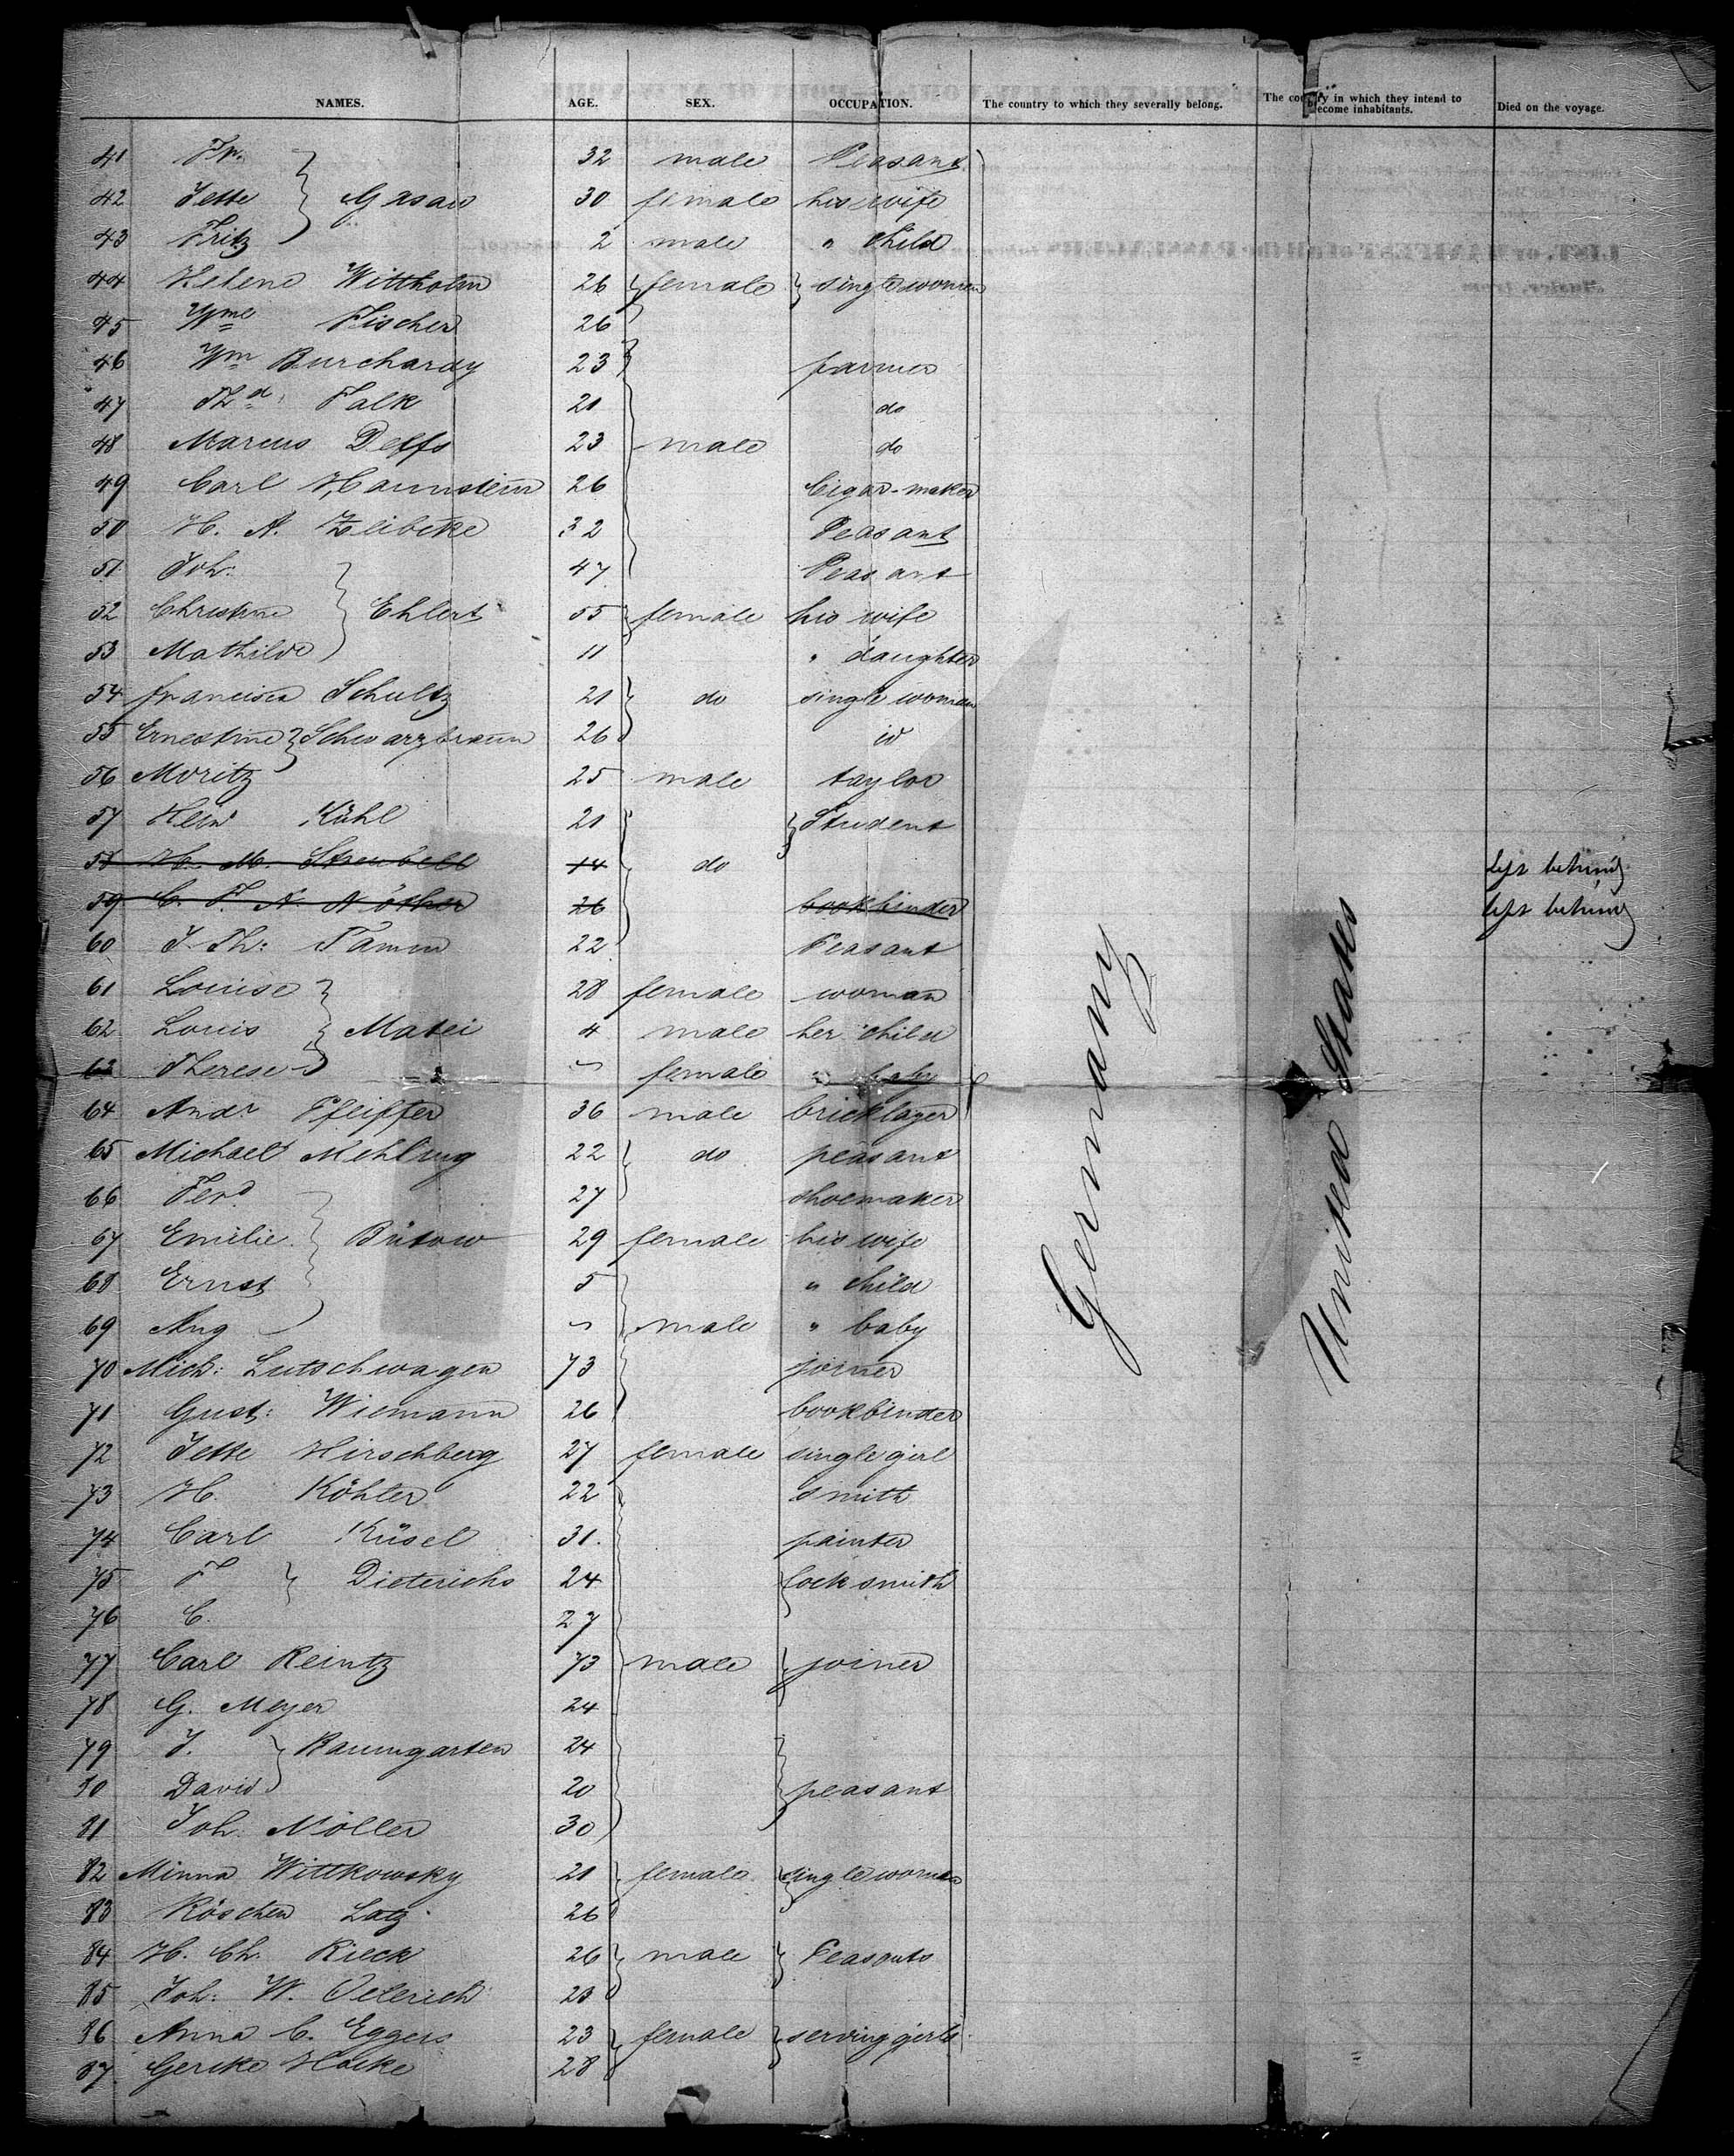 NAMES. AGE. SEX. OCCUPATION. The country to which they severally belong. The country in which they intend to become inhabitants. Died on the voyage.
41 Fr. 32 male Peasant
42 Jette } Gasau 30 female his wife
43 Fritz 2 male " child
44 Helene Wittholm 26 female single women
45 Wme Fischer 26
46 Wm Burchardy 23 farmer
47 Thd Falk 21 do
48 Marcus Deffs 23 male do
49 Carl Haunstein 26 Cigar-maker
50 H. A. Zeibeke 32 Peasant
51 Joh: 47 Peasant
52 Christine } Ehlert 55 female his wife
53 Mathilde 11 " daughter
54 Francisca Schultz 21 do single woman
55 Ernestine } Schwarzbraun 26 id
56 Moritz 25 male taylor
57 Hein Kühl 21 Student
58 H. M. Strubell 14 do left behind
59 C. F. N. Nöther 26 bookbinder left behind
60 J. Th: Tamm 22 Peasant
61 Louise 28 female woman
62 Louis } Matei 4 male her child
63 Therese female " baby
64 Andr Pfeiffer 36 male bricklayer
65 Michael Mehling 22 do peasant
66 Ferd 27 shoemaker
67 Emilie } Bütow 29 female his wife
68 Ernst 5 " child
69 Aug male " baby
70 Mich: Lutschwagen 73 joiner
71 Gust: Wiemann 26 bookbinder
72 Jette Hirschberg 27 female single girl
73 H. Köhler 22 smith
74 Carl Rüsel 31. painter
75 F } Dieterichs 24 locksmith
76 C. 27
77 Carl Reintz 73 male joiner
78 G. Meyer 24
79 J. } Baumgarten 24
80 David 20 peasant
81 Joh. Möller 30
82 Minna Wittkowsky 21 female single woman
83 Röschen Latz 26
84 H. Ch. Rieck 26 male Peasants
85 Joh: W. Oelerich 23
86 Anna C. Eggers 23 female serving girls
87 Gerike Hacke 28
Germany
United States